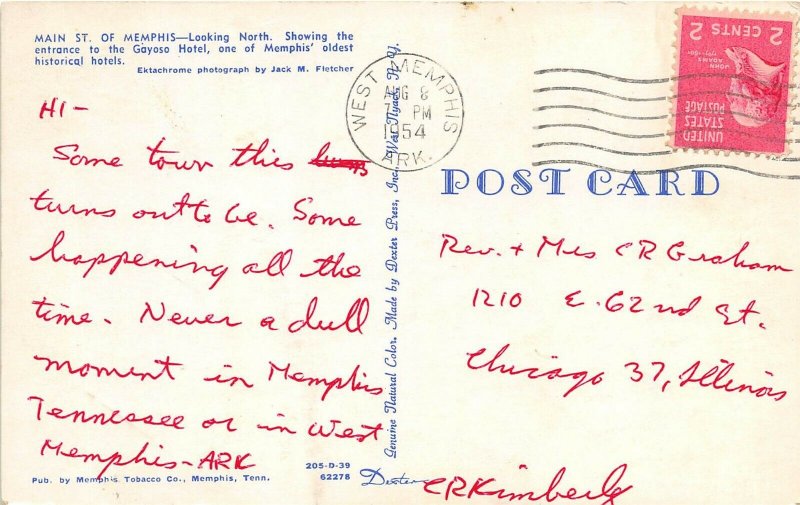 MAIN ST. OF MEMPHIS—Looking North. Showing the
entrance to the Gayoso Hotel, one of Memphis' oldest
historical hotels.
Ektachrome photograph by Jack M. Fletcher
HI-
Some town this
turns out to be. Some
happening all the
time. Never a dull
moment in Memphis
Tennessee or in West
Memphis-ARK
Pub. by Memphis Tobacco Co., Memphis, Tenn.
205-D-39
62278
Genuine Natural Color. Made by Dexter Press, Inc., West Nyack, N. Y.
Dexter
WEST MEMPHIS
AUG 8
7 PM
1954
ARK.
UNITED
STATES
POSTAGE
JOHN
ADAMS
1797-1801
2 CENTS 2
POST CARD
Rev. + Mrs CR Graham
1210 E. 62nd St.
Chicago 37, Illinois
CRKimberly